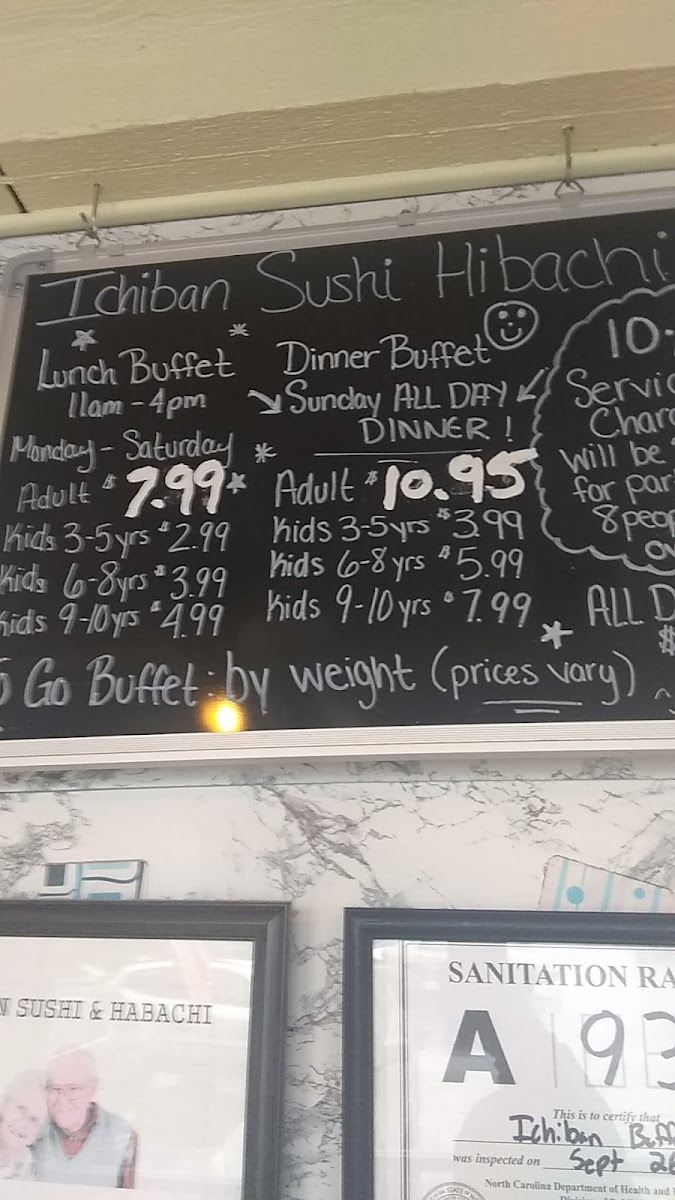 Ichiban Sushi Hibachi
Lunch Buffet
11am - 4pm
Monday - Saturday
Adult $7.99
Kids 3-5yrs $2.99
Kids 6-8yrs $3.99
Kids 9-10yrs $4.99
Dinner Buffet
Sunday ALL DAY
DINNER!
Adult $10.95
Kids 3-5yrs $3.99
Kids 6-8yrs $5.99
Kids 9-10yrs $7.99
10
will be
for
ALL
$
Go Buffet: by weight (prices vary)
SUSHI & HABACHI
SANITATION
A 93
This is to certify that
Ichiban
was inspected on Sept 26
North Carolina Department of Health and